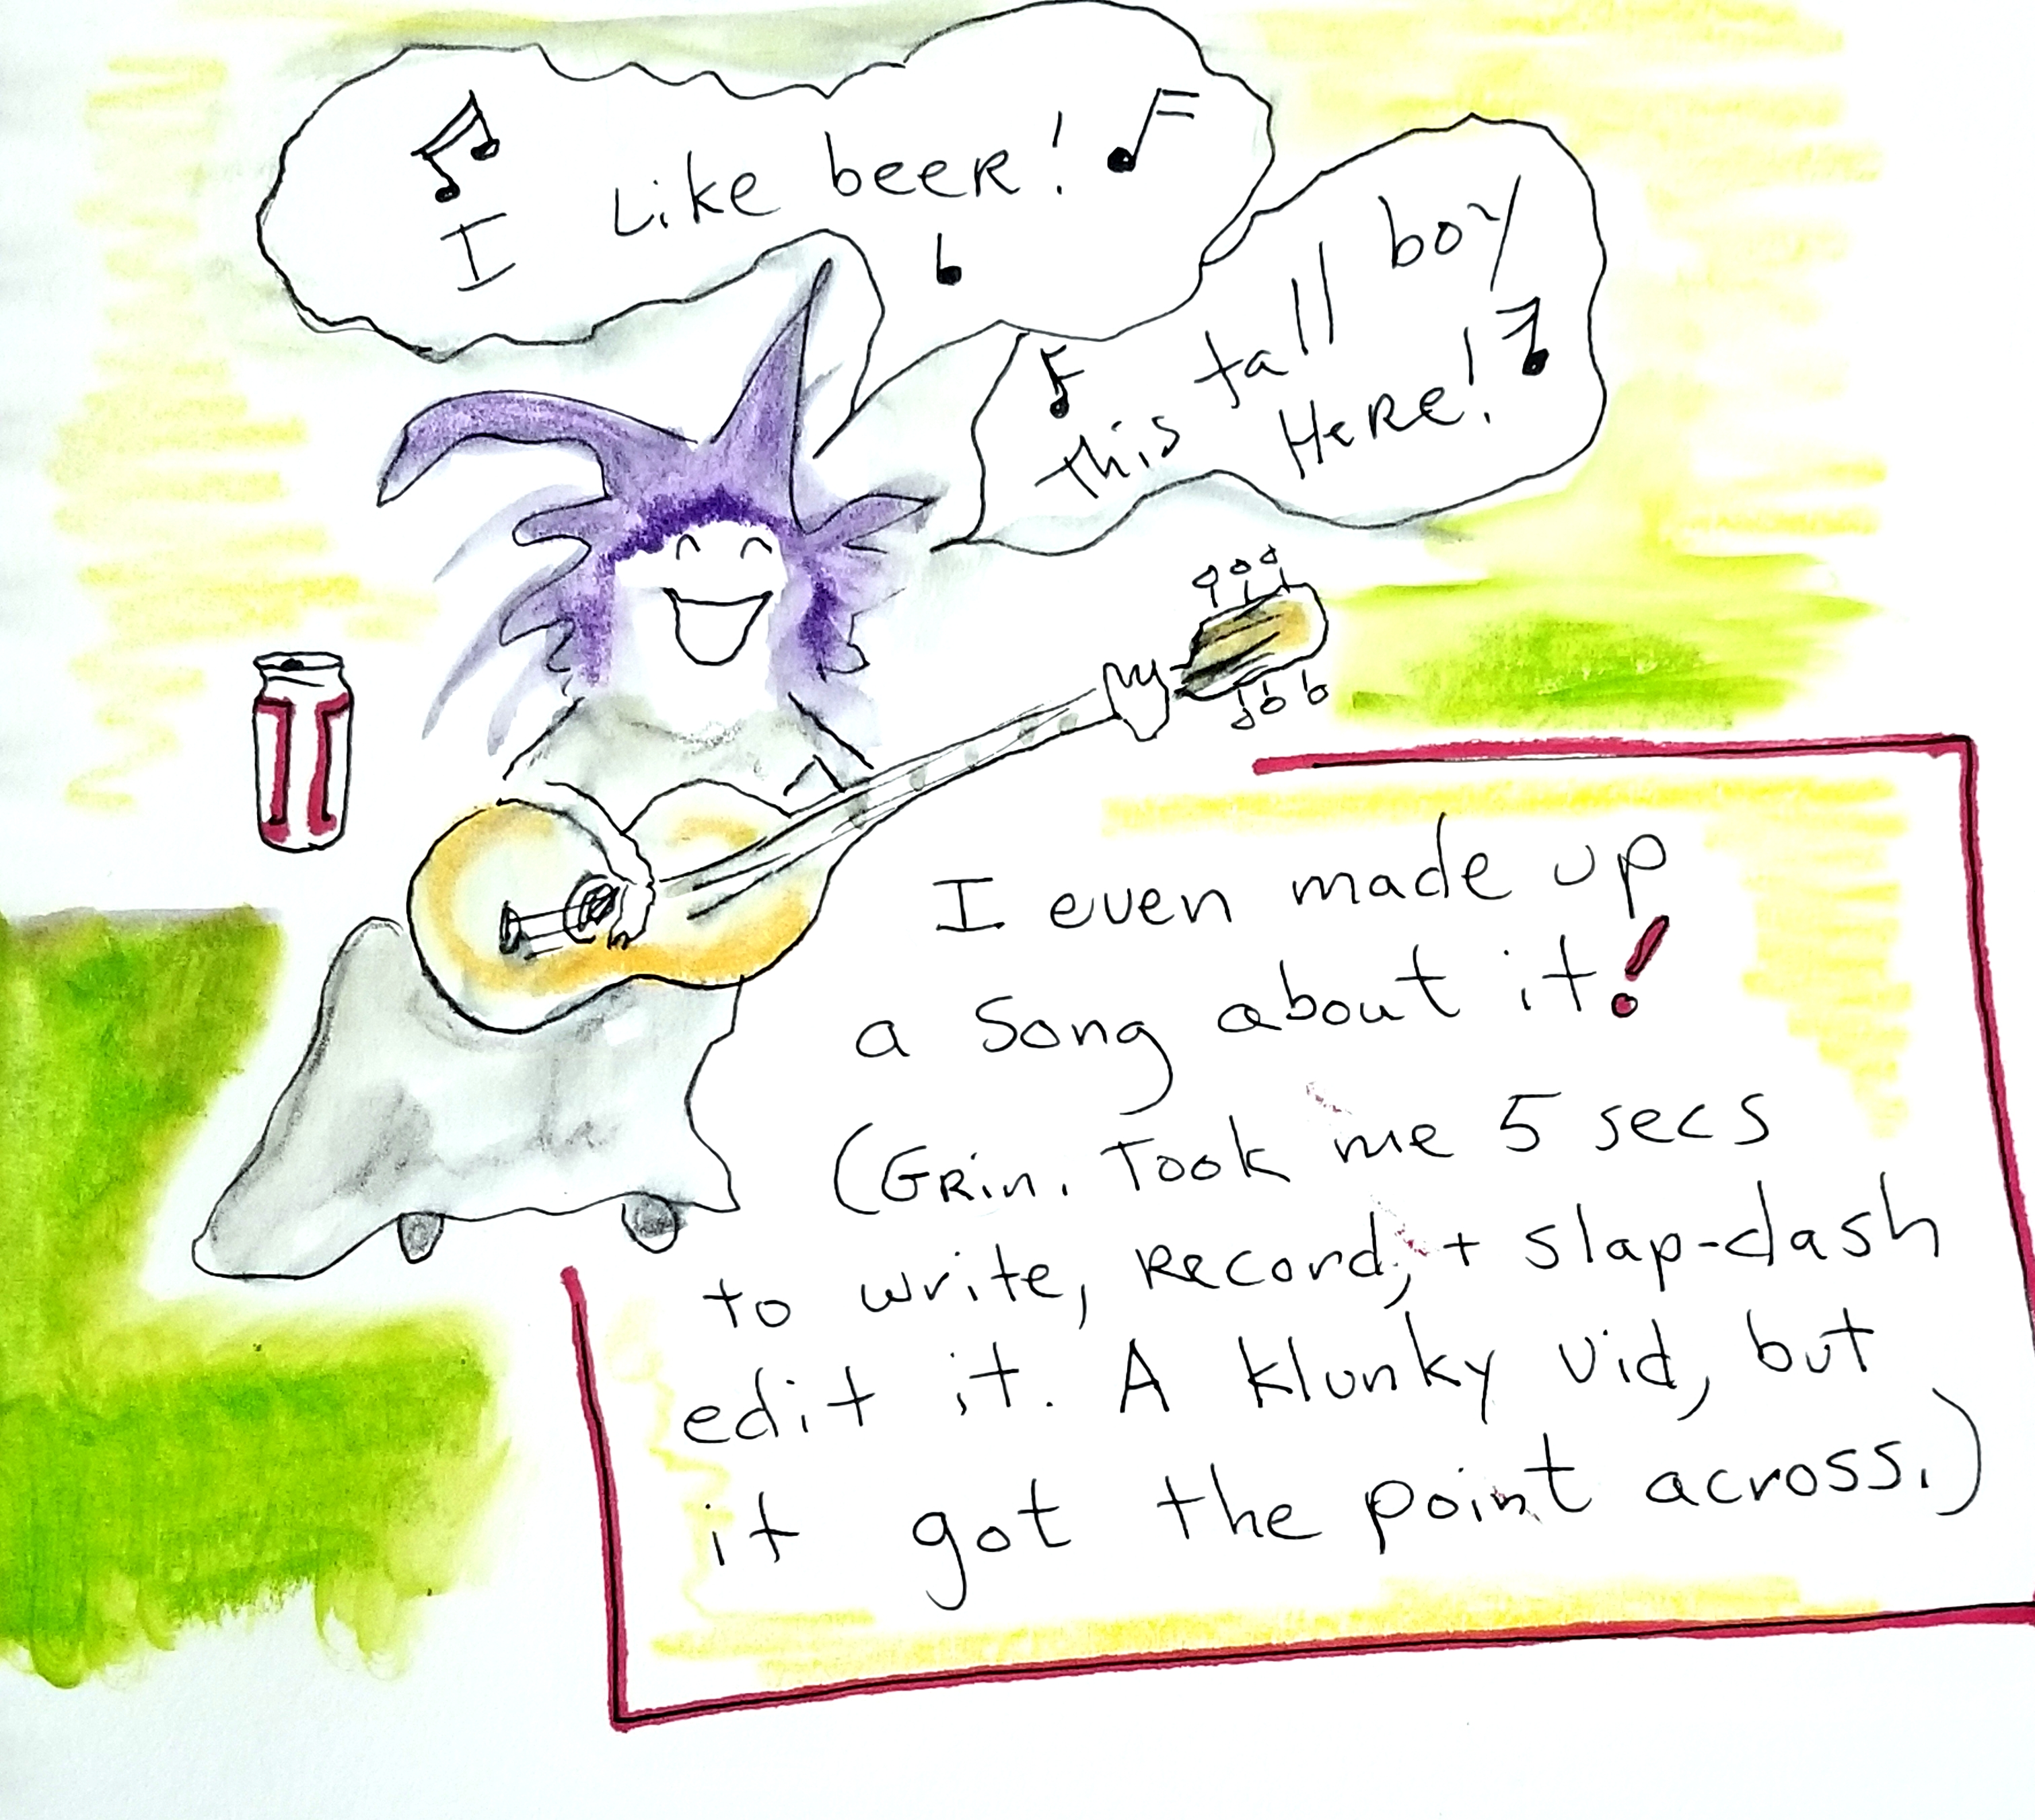 I Like beer!
This tall boy
Here!
I even made up
a Song about it!
(Grin. Took me 5 secs
to write, Record, + slap-dash
edit it. A klunky vid, but
it got the point across.)